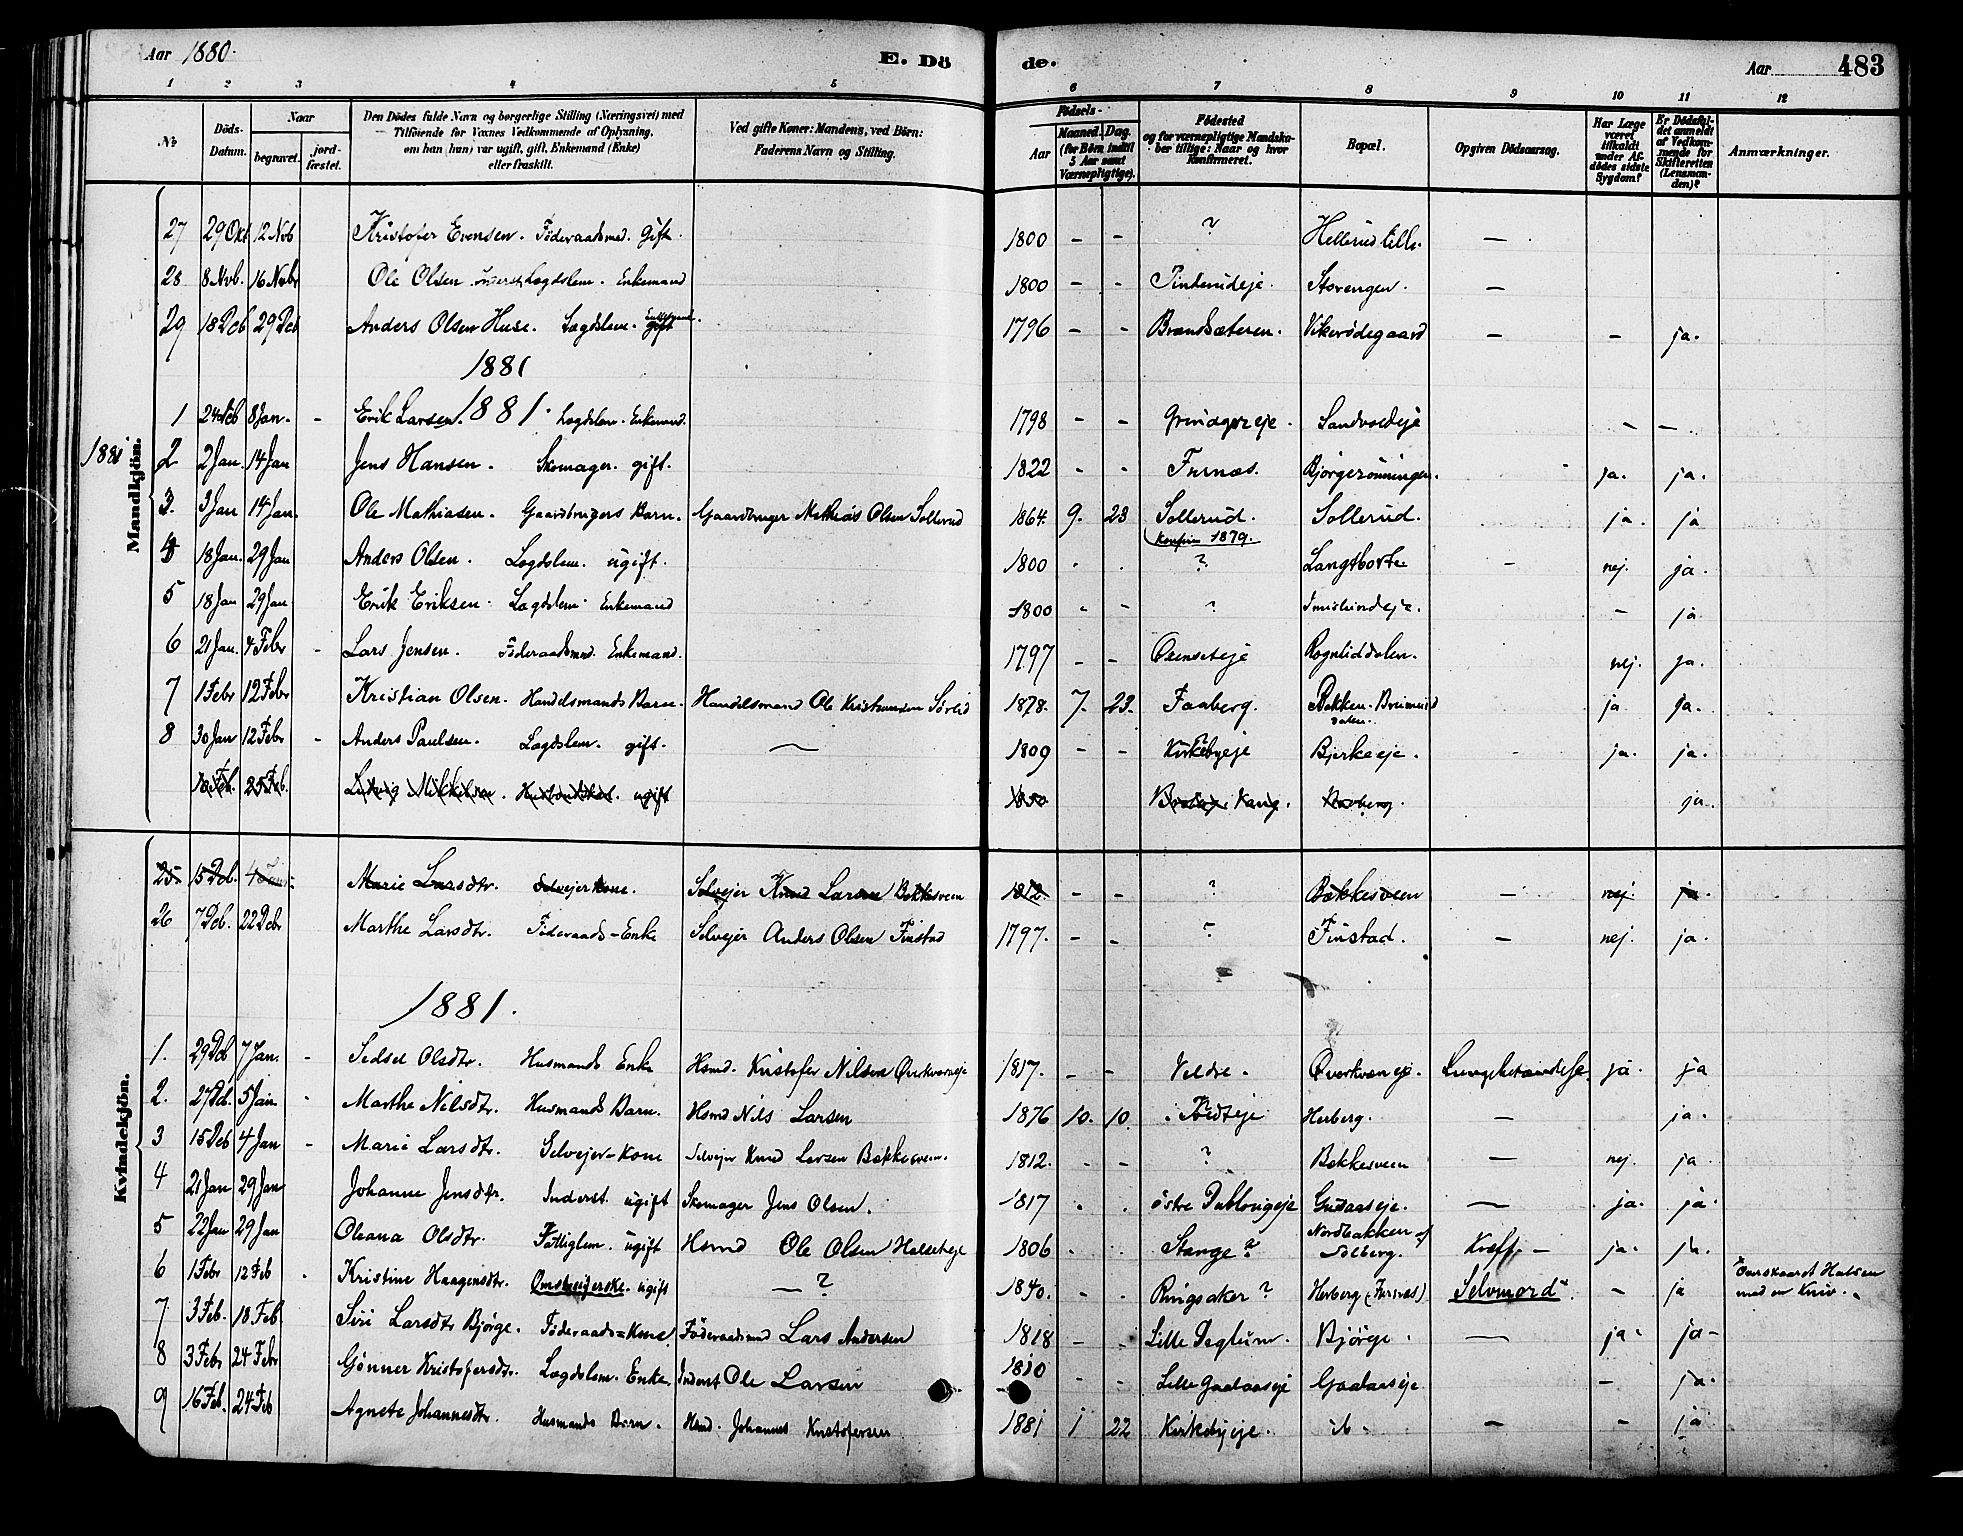 Aar 1880. E. Dö de. Aar 483
1 2 3 4 5 6 7 8 9 10 11 12
No. Döds-Datum. Naar begravet. jord-fæstet. Den Dödes fulde Navn og borgerlige Stilling (Næringsvei) med Tilföiende for Voxnes Vedkommende af Oplysning, om han (hun) var ugift, gift, Enkemand (Enke) eller fraskilt. Ved gifte Koner: Mandens, ved Börn: Faderens Navn og Stilling. Födsels- Aar Maaned. Dag. (for Börn indtil 5 Aar samt Værnepligtige). Födested og for værnepligtige Mandskaber tillige: Naar og hvor Konfirmeret. Bopæl. Opgiven Dödsaarsag. Har Læge været tilkaldt under Afdödes sidste Sygdom? Er Dödsfaldet anmeldt af Vedkommende for Skifteretten (Lensmanden)? Anmærkninger.
Mandkjön.
27 29 Okt 12 Nob Kristofer Evensen. Föderaadsmd. gift. 1800 - - ? Hellerud eller. -
28 8 Nvb. 16 Novbr Ole Olsen Lægdslem. Enkemand 1800 - - Pinterudeje. Storengen. -
29 18 Dcb 29 Dcb Anders Olsen Huse. Lægdslem. gift Enkemand. 1796 - - Brændsæteren. Vikerödegaard - - ja.
1881
1881
1 24 Dcb 8 Jan. - Erik Larsen. 1881. Lægdslem. Enkemand. 1798 - - Sandvoldeje - -
2 2 Jan. 14 Jan Jens Hansen. Skomager. gift. 1822 - - Furnæs. Bjørgerønningen. ja. ja.
3. 3 Jan 14 Jan. Ole Mathiasen. Gaardbrugers Barn. Gaardbruger Mathias Olsen Sollerud 1864. 9. 23 Sollerud. konfirm 1879. Sollerud. ja. ja
4 18 Jan. 29 Jan Anders Olsen. Lægdslem. ugift. 1800 . . ? - nej. ja.
5 18 Jan 29 Jan Erik Eriksen. Lægdslem. Enkemand 1800 - - ? - ja
6 21 Jan. 4 Febr - Lars Jensen. Föderaadsmd. Enkemand. 1797 - - Rognliddalen. nej. ja.
7 1 Febr 12 Febr Kristian Olsen. Handelsmands Barn. Handelsmand Ole Kristiansen Sørlid 1878. 7. 23. Faaberg. Bakken. Breimund dalen. ja ja.
8 30 Jan 12 Febr - Anders Paulsen. Lægdslem. gift. 1809 - - Kirkebyeje Bjerkeeje. - ja. ja.
18 Feb. 25 Feb. Ludvig Mikkelsen. ugift 1850 Vang. ja.
Kvindekjön.
25. 15 Dcb. 4 Jan. Marie Larsdtr. Selvejerkone. Selvejer Knud Larsen Bækkesveen 1812. - - ? Bækkesveen - nej. ja.
26 7 Dcb. 22 Dcbr Marthe Larsdtr. Föderaads-Enke Selvejer Anders Olsen Finstad 1797. - - ? Finstad. - nej. ja.
1881.
1. 29 Dcb 7 Jan. - Sidsel Olsdtr. Husmands Enke Hsmd. Kristofer Nilsen Øverkværneje 1817. - - Veldre. Øverkværneje. Lungebetændelse. ja. ja
2. 27 Dcb. 5 Jan . Marthe Nilsdtr. Husmands Barn. Hsmd Nils Larsen 1876 10. 10. Herberg. - ja.
3 15 Dcb 4 Jan - Marie Larsdtr. Selvejer-Kone Selvejer Knud Larsen Bækkesveen. 1812. - - ? Bækkesveen - nej. ja
4 21 Jan 29 Jan Johanne Jensdtr. Inderst. ugift Skomager Jens Olsen. 1817 . . östre Dublougeje Gudaaseje. - ja. ja.
5 22 Jan 29 Jan Oleana Olsdtr. Fattiglem. ugift Hsmd Ole Olsen Halseteje 1806 - . Stange? Nordbakken af Solberg. Kræft. - ja. ja.
6 1 Febr 12 Feb . Kristine Haagensdtr. Omstreiferske. ugift - ? 1840. - - Ringsaker? Herberg (Furnæs) "Selvmord". - ja Overskaaret Halsen med en Kniv.
7 3 Feb. 18 Feb Siri Larsdtr Bjørge. Föderaads-Kone Föderaadsmd Lars Andersen 1818 - - Lille Deglum. Bjørge. - ja. ja-
8 3 Febr 24 Febr Gønner Kristofersdtr. Lægdslem. Enke. Inderst Ole Larsen 1810 - - Lille Gaalaaseje Gaalaaseje. - ja.
9 16 Feb. 24 Feb Agnete Johannesdtr. Husmands Barn. Hsmd. Johannes Kristofersen 1881 1 22 Kirkebyeje. do - - ja